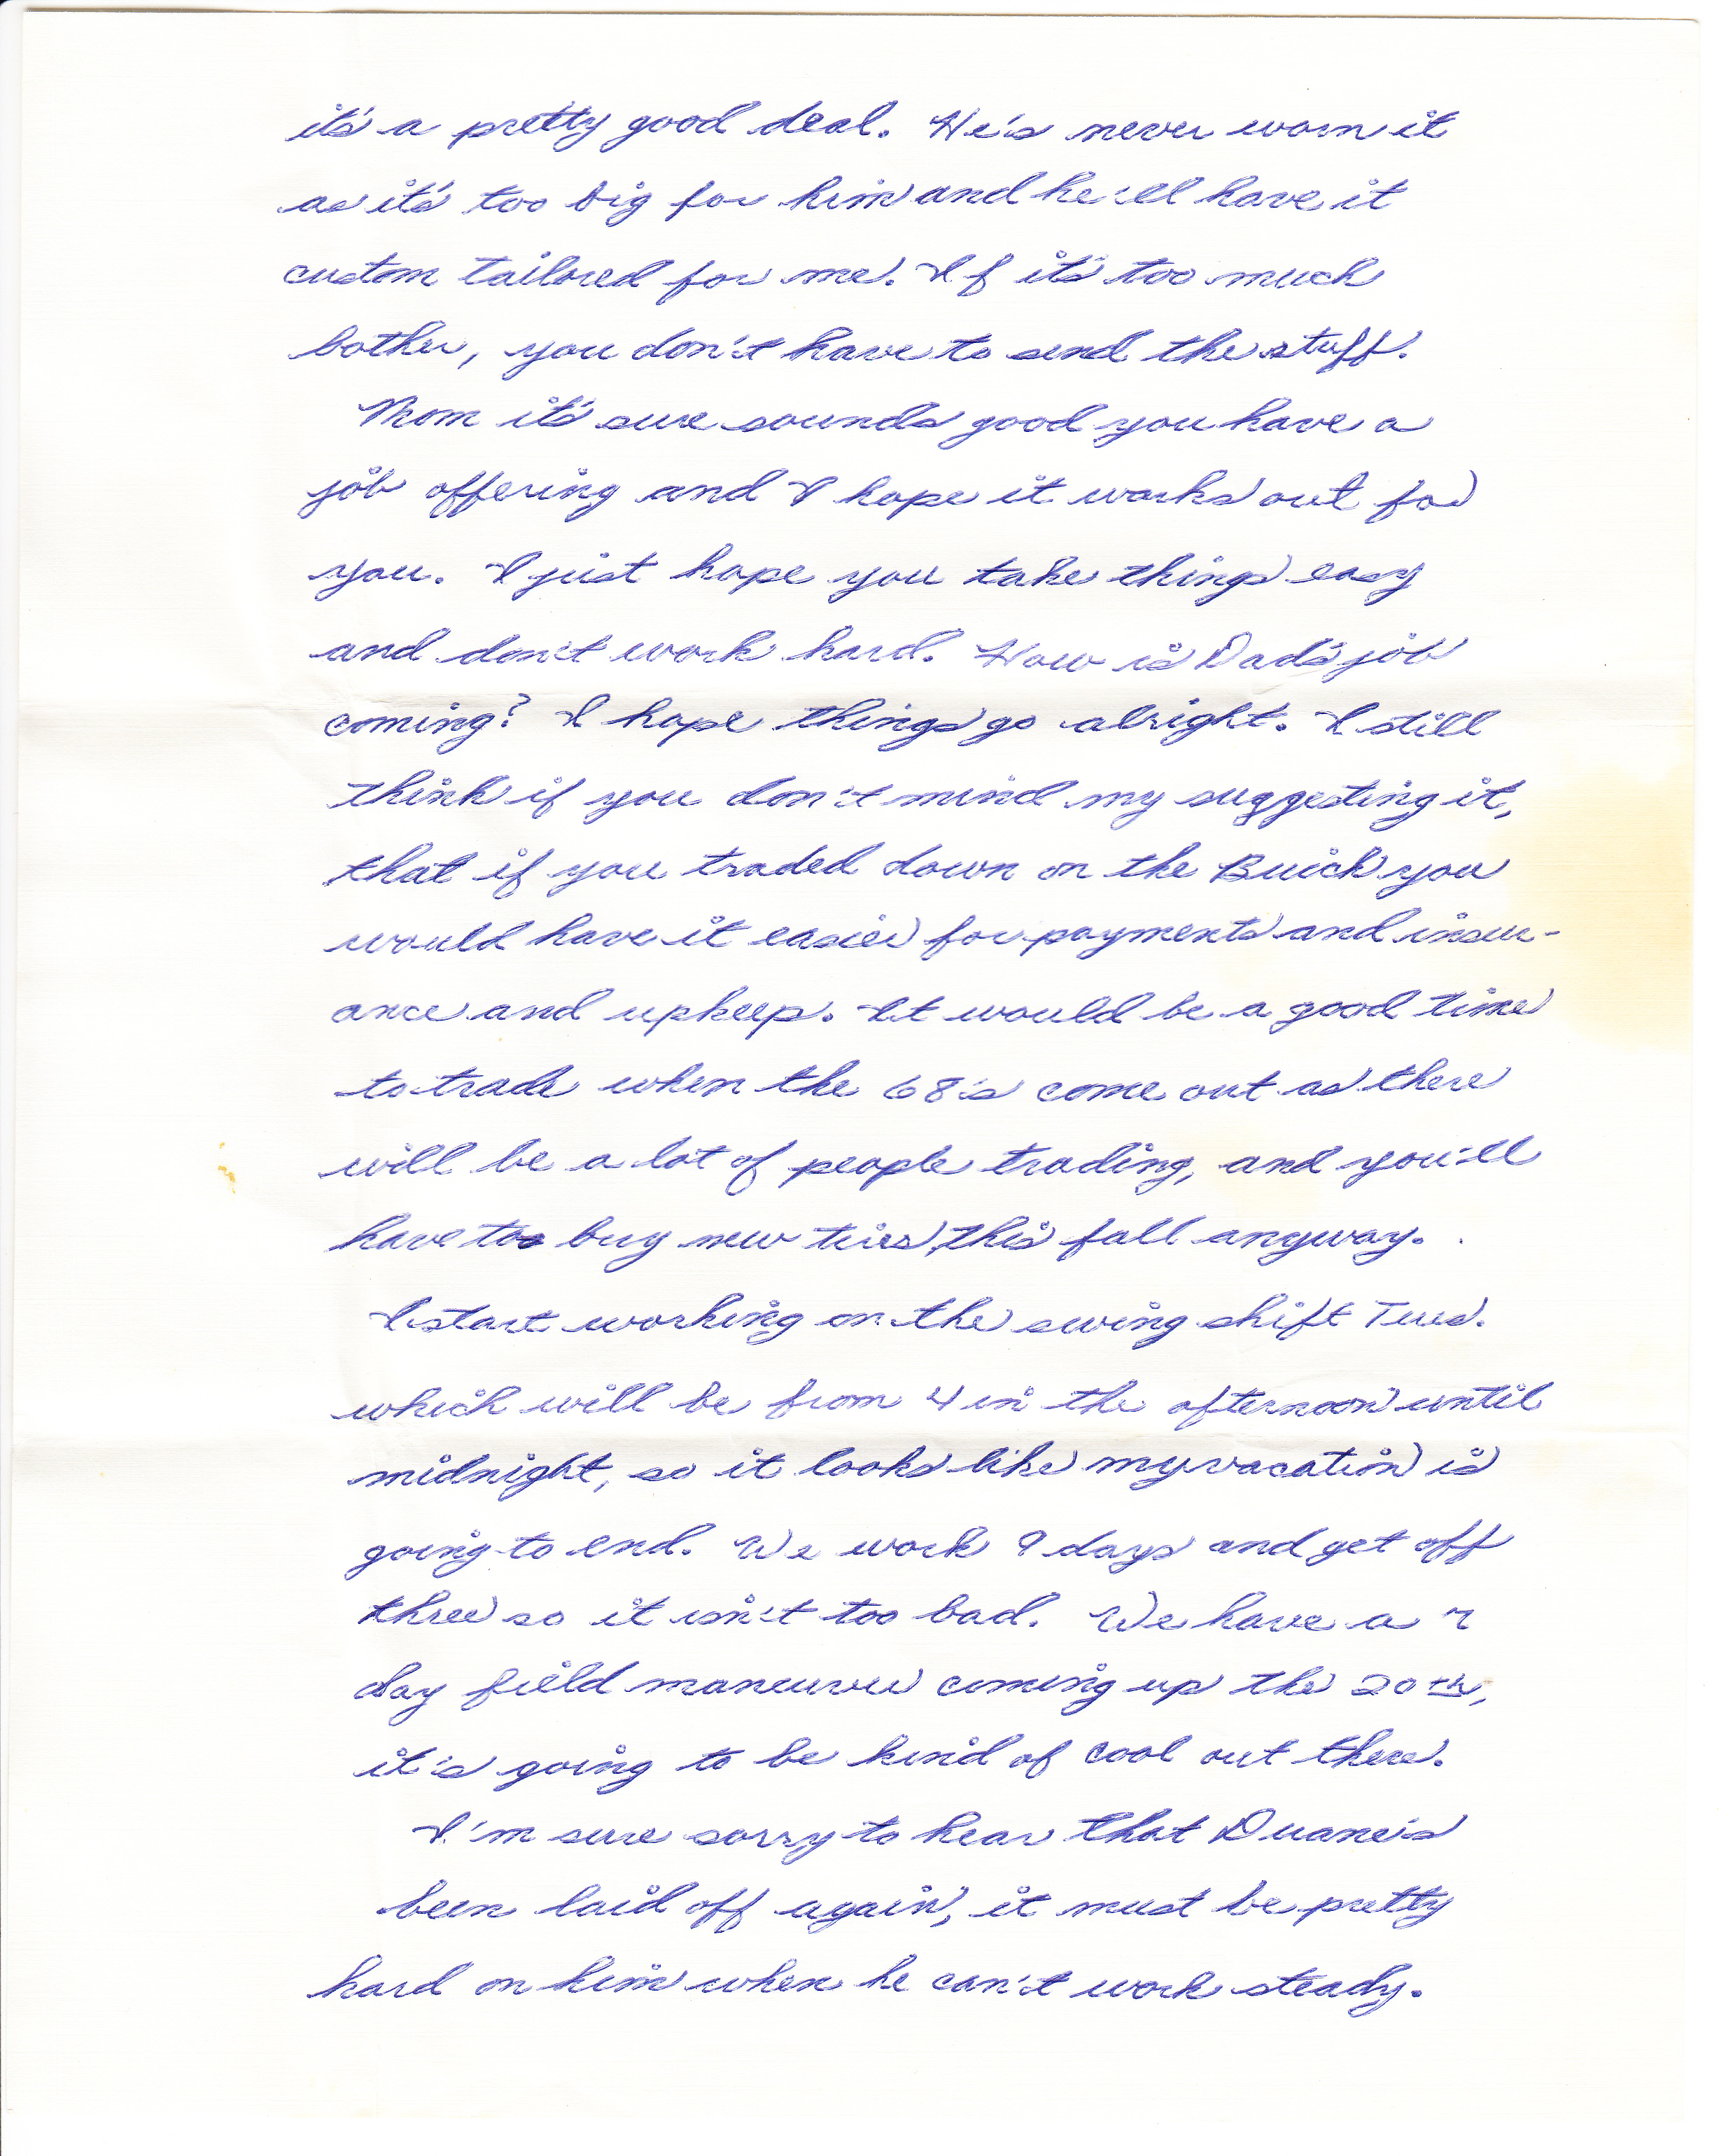 it's a pretty good deal. He's never worn it
as it's too big for him and he'll have it
custom tailored for me. If it's too much
bother, you don't have to send the stuff.
Mom it's sure sounds good you have a
job offering and I hope it works out for
you. I just hope you take things easy
and don't work hard. How is Dad's job
coming? I hope things go alright. I still
think if you don't mind my suggesting it,
that if you traded down on the Buick you
would have it easier for payments and insur-
ance and upkeep. It would be a good time
to trade when the 68's come out as there
will be a lot of people trading, and you'll
have to buy new tires this fall anyway.
I start working on the swing shift Tues.
which will be from 4 in the afternoon until
midnight, so it looks like my vacation is
going to end. We work 9 days and get off
three so it isn't too bad. We have a
day field maneuver coming up the 20th,
it's going to be kind of cool out there.
I'm sure sorry to hear that Duane's
been laid off again, it must be pretty
hard on him when he can't work steady.